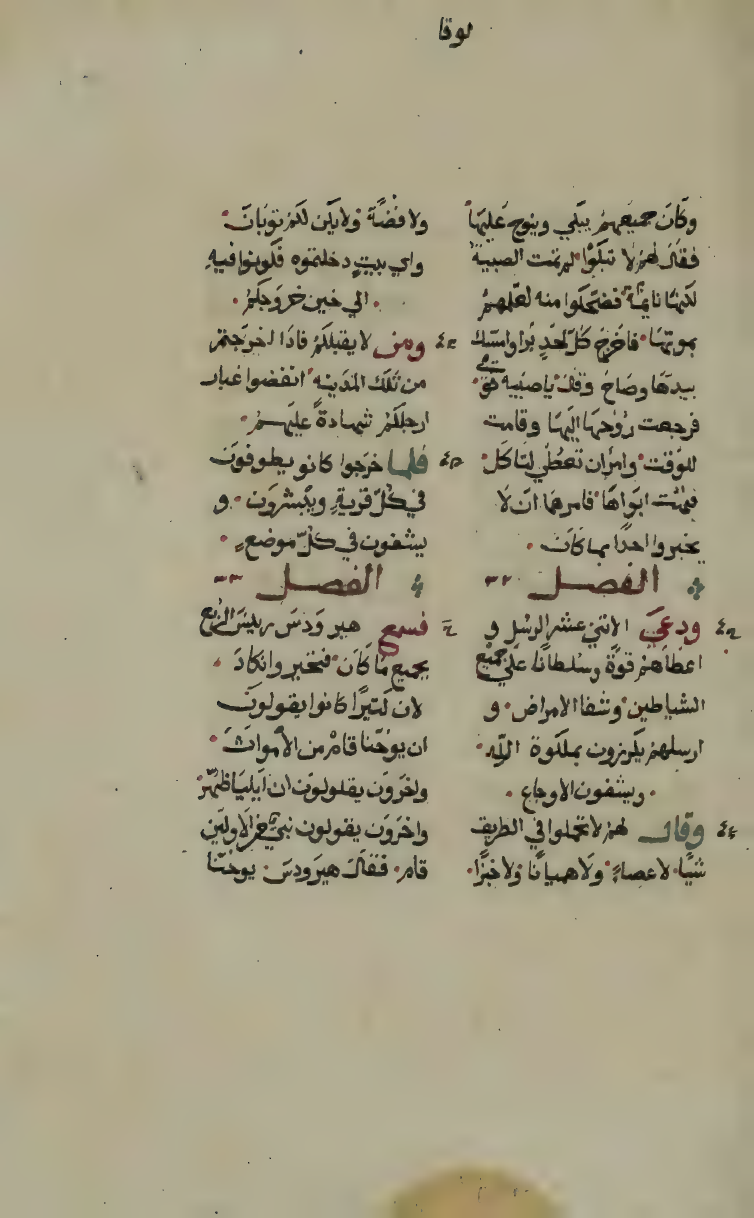 لوقا
وكان جميعهم يبكي وينوح عليها
فقال لهم لا تبكوا لم تمت الصبية
لكنها نايمة فضحكوا منه لعلمهم
بموتها فاخرج كل احد برا وامسك
بيدها وصاح وقال يا صبية قومي
فرجعت روحها اليها وقامت
للوقت وامر ان تعطي لتاكل
فبهت ابواها فامرهما ان لا
يخبروا احدا بما كان
الفصل ٣٢
ودعي الاثني عشر الرسل و
اعطاهم قوة وسلطانا علي جميع
الشياطين وشفا الامراض و
ارسلهم يكرزون بملكوة الله
ويشفون الاوجاع
وقال لهم لا تحملوا في الطريق
شيا لا عصاة ولا هميانا ولا خبزا
ولا فضة ولا يكن لكم ثوبان
واي بيت دخلتموه فكونوا فيه
الي حين خروجكم
ومن لا يقبلكم فاذا خرجتم
من تلك المدينه انفضوا غبار
ارجلكم شهادة عليهم
فلما خرجوا كانو يطوفون
في كل قرية ويبشرون و
يشفون في كل موضع
الفصل ٣٣
فسمع هيرودس رييس الربع
بجميع ما كان فتحير وانكاد
لان كثيرا كانوا يقولون
ان يوحنا قام من الأموات
واخرون يقولون ان ايليا ظهر
واخرون يقولون نبي من الاولين
قام فقال هيرودس يوحنا